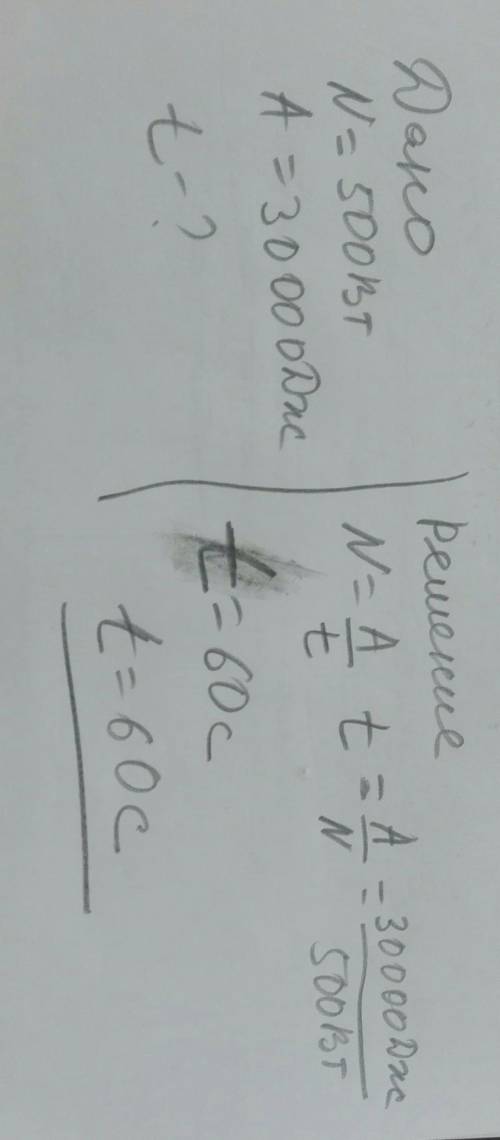 Дано
N = 500Вт
A = 30000Дж
t - ?
Решение
N = A/t t = A/N = 30000Дж/500Вт
t = 60с
t = 60с